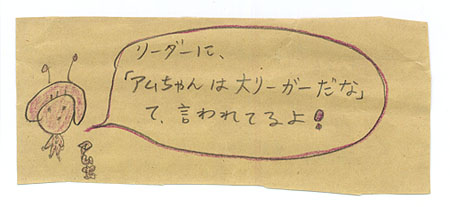 リーダーに、
「アムちゃんは大リーガーだな」
て、言われてるよ!